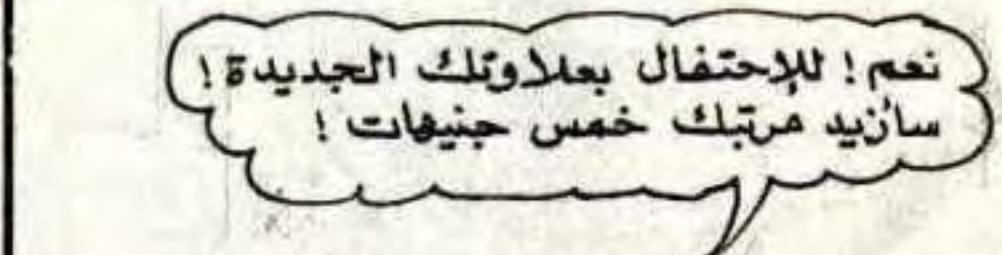 نعم ! للإحتفال بعلاوتك الجديدة !
سأزيد مرتبك خمس جنيهات !